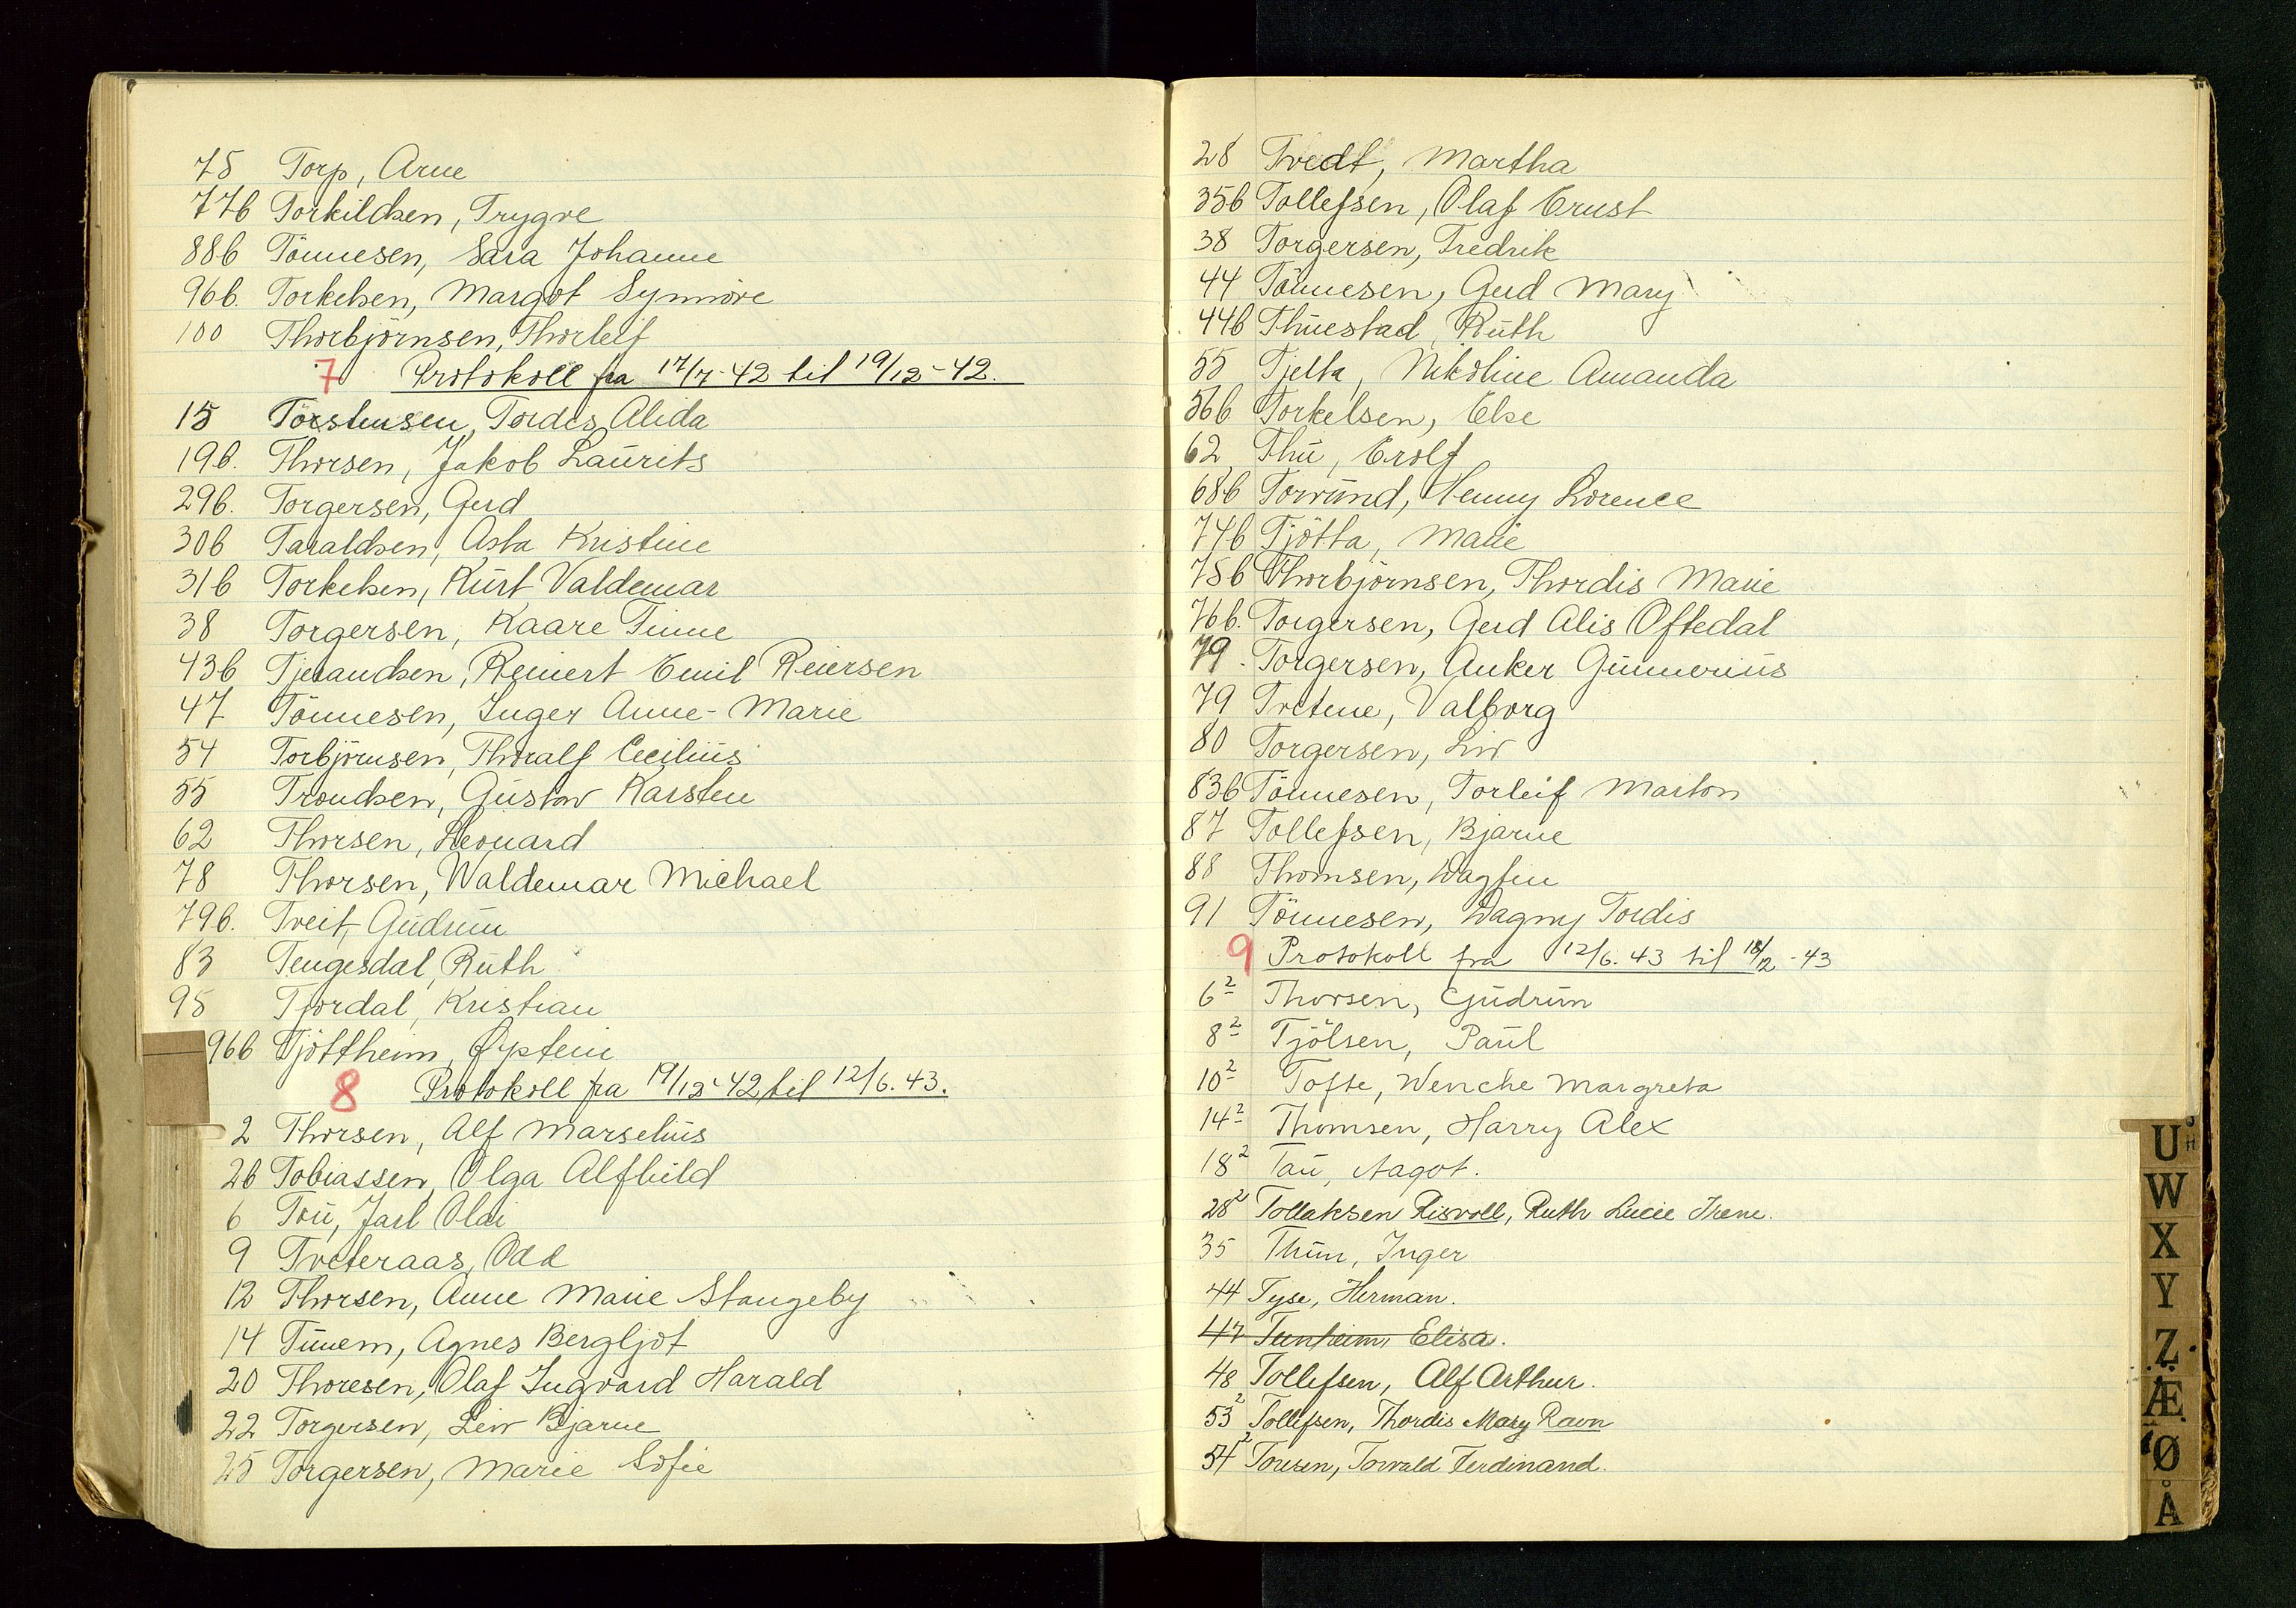 75 Torp, Arne
77b Torkildsen, Trygve
88b Tönnesen, Sara Johanne
96b. Torkelsen, Margot Synnöve
100 Thorbjörnsen, Thorleif
7 Protokoll fra 17/7-42 til 19/12-42.
15 Torstensen, Tordis Alida
19b. Thorsen, Jakob Laurits
29b. Torgersen, Gerd
30b Taraldsen, Asta Kristine
31b Torkelsen, Kurt Valdemar
38 Torgersen, Kaare Finne
43b Tjerandsen, Reinert Emil Reiersen
47 Tönnesen, Inger Anne-Marie
54 Torbjörnsen, Thoralf Cecilius
55 Trondsen, Gustav Karsten
62 Thorsen, Leonard
78 Thorsen, Waldemar Michael
79b. Tveit, Gudrun
83 Tengesdal, Ruth
95 Tjordal, Kristian
96b Tjöttheim, Øystein
8 Protokoll fra 19/12-42 til 12/6.43.
2 Thorsen, Alf Marselius
2b Tobiassen, Olga Alfhild
6 Tou, Jarl Olai
9 Tveteraas, Odd
12 Thorsen, Anne Marie Stangeby
14 Tunem, Agnes Bergljot
20 Thoresen, Olaf Ingvard Harald
22 Torgersen, Leiv Bjarne
25 Torgersen, Marie Sofie
28 Tvedt, Martha
35b Tollefsen, Olaf Ernst
38 Torgersen, Fredrik
44 Tönnesen, Gerd Mary
44b Thuestad, Ruth
55 Tjelta, Nikoline Amanda
56b Torkelsen, Else
62 Thu, Erolf
68b Torvund, Henny Lorence
74b Tjötta, Marie
75b Thorbjörnsen, Thordis Marie
76b. Torgersen, Gerd Alis Oftedal
79. Torgersen, Anker Gunnerius
79 Tvetene, Valborg
80 Torgersen, Liv
83b Tönnesen, Torleif Marton
87 Tollefsen, Bjarne
88 Thomsen, Dagfin
91 Tönnesen, Dagny Tordis
9 Protokoll fra 12/6.43 til 18/12-43
6² Thorsen, Gudrun
8² Tjölsen, Paul
10² Tofte, Wenche Margreta
14² Thomsen, Harry Alex
18² Tau, Aagot.
28² Tollaksen Risvoll, Ruth Lucie Irene.
35 Thun, Inger
44 Tyse, Herman.
47 Tunheim, Elisa.
48 Tollefsen, Alf Arthur.
53² Tollefsen, Thordis Mary Ravn
54² Toresen, Torvald Ferdinand.
U
W
X
Y
Z
Æ
Ø
Å